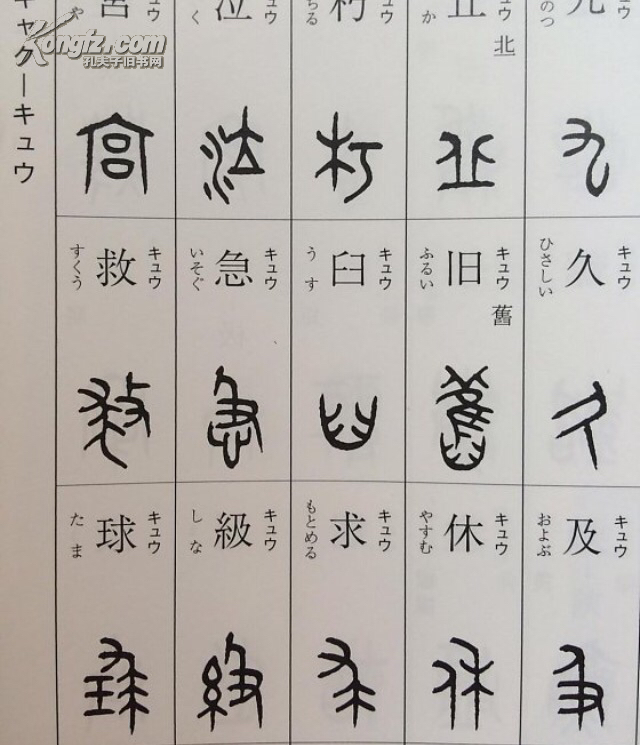 ュウ
九
のつ
キュウ
久
ひさしい
キュウ
及
およぶ
ュウ
丘
丠
か
キュウ
旧
舊
ふるい
キュウ
休
やすむ
ュウ
朽
ちる
キュウ
臼
うす
キュウ
求
もとめる
ュウ
泣
く
キュウ
急
いそぐ
キュウ
級
しな
宮
や
キュウ
救
すくう
キュウ
球
たま
キャク—キュウ
Kongfz.com
孔夫子旧书网